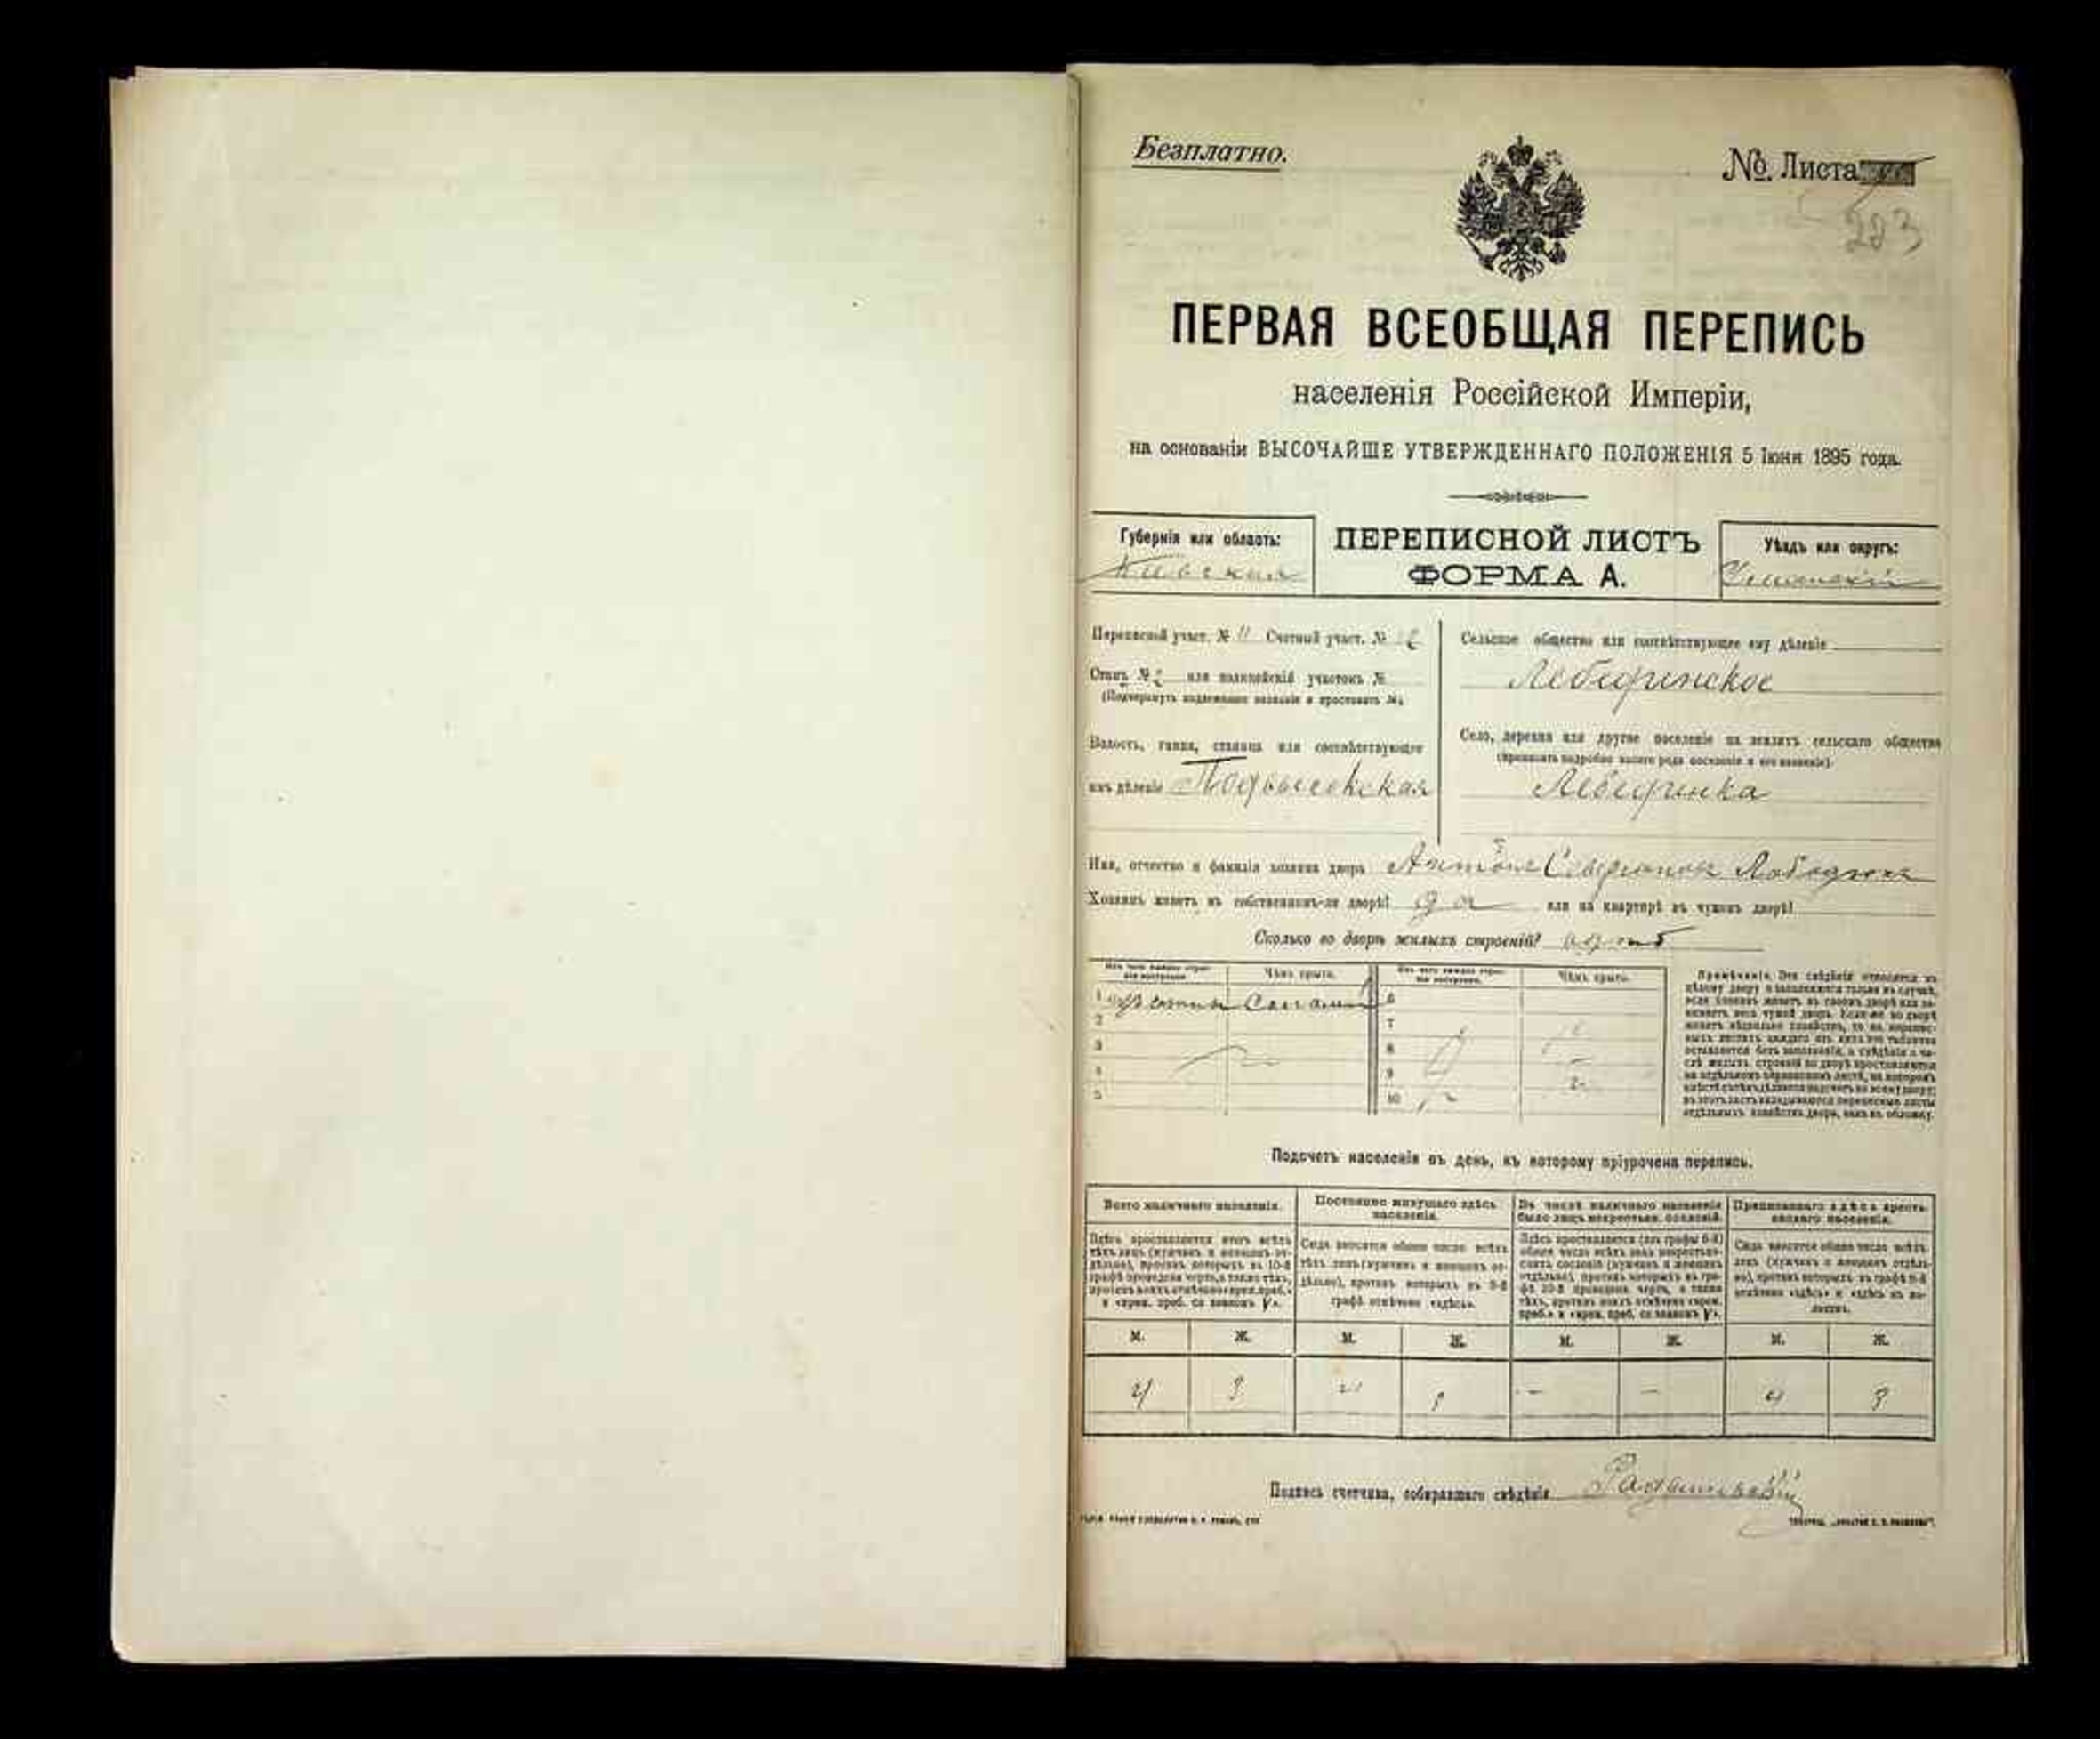 Безплатно.
№ Листа
223
ПЕРВАЯ ВСЕОБЩАЯ ПЕРЕПИСЬ
населенія Россійской Имперіи,
на основаніи ВЫСОЧАЙШЕ УТВЕРЖДЕННАГО ПОЛОЖЕНІЯ 5 Іюня 1895 года.
Губернія или область:
Кіевская
ПЕРЕПИСНОЙ ЛИСТЪ
ФОРМА А.
Уѣздъ или округъ:
Уманскій
Переписной участ. № 11 Счетный участ. № 2
Станъ № 2 или полицейскій участокъ №
(Подчеркнуть надлежащее названіе и проставить №)
Волость, гмина, станица или соотвѣтствующее
имъ дѣленіе Подвысокская
Сельское общество или соотвѣтствующее ему дѣленіе
Лебединское
Село, деревня или другое поселеніе на земляхъ сельскаго общества
(прописать подробно какого рода поселеніе и его названіе).
Лебединка
Имя, отчество и фамилія хозяина двора Антонъ
Хозяинъ живетъ въ собственномъ-ли дворѣ? да или на квартирѣ въ чужомъ дворѣ?
Сколько во дворѣ жилыхъ строеній?
Изъ чего каждое строеніе построено.
Чѣмъ крыто.
Изъ чего каждое строеніе построено.
Чѣмъ крыто.
1 6
2 7
3 8
4 9
5 10
Примѣчаніе. Эти свѣдѣнія относятся къ
цѣлому двору и заполняются только въ случаѣ,
если хозяинъ живетъ въ своемъ дворѣ или за-
нимаетъ весь чужой дворъ. Если-же во дворѣ
живетъ нѣсколько хозяйствъ, то на перепис-
ныхъ листахъ каждаго изъ нихъ эта табличка
оставляется безъ заполненія, а свѣдѣнія о чи-
слѣ жилыхъ строеній во дворѣ проставляются
на отдѣльномъ переписномъ листѣ, на которомъ
въ этотъ листъ вкладываются переписные листы
отдѣльныхъ хозяйствъ двора, какъ въ обложку.
Подсчетъ населенія въ день, къ которому пріурочена перепись.
Всего наличнаго населенія.
Постоянно живущаго здѣсь населенія.
Въ числѣ наличнаго населенія было лицъ некрестьян. сословій.
Приписаннаго здѣсь крестьянскаго населенія.
Здѣсь проставляется итогъ всѣхъ
тѣхъ лицъ (мужчинъ и женщинъ от-
дѣльно), противъ которыхъ въ 10-й
графѣ проведена черта, а также тѣхъ,
противъ коихъ отмѣчено «врем. преб.»
и «врем. преб. со знакомъ V».
Сюда вносится общее число всѣхъ
тѣхъ лицъ (мужчинъ и женщинъ от-
дѣльно), противъ которыхъ въ 9-й
графѣ отмѣчено «здѣсь».
Здѣсь проставляется (изъ графы 6-й)
общее число всѣхъ лицъ некрестьян-
скихъ сословій (мужчинъ и женщинъ
отдѣльно), противъ которыхъ въ гра-
фѣ 10-й проведена черта, а также
тѣхъ, противъ коихъ отмѣчено «врем.
преб.» и «врем. преб. со знакомъ V».
Сюда вносится общее число всѣхъ
лицъ (мужчинъ и женщинъ отдѣль-
но), противъ которыхъ въ графѣ 8-й
отмѣчено «здѣсь» и «здѣсь въ во-
лости».
М. Ж. М. Ж. М. Ж. М. Ж.
4 3 4 - - 4 3
Подпись счетчика, собиравшаго свѣдѣнія